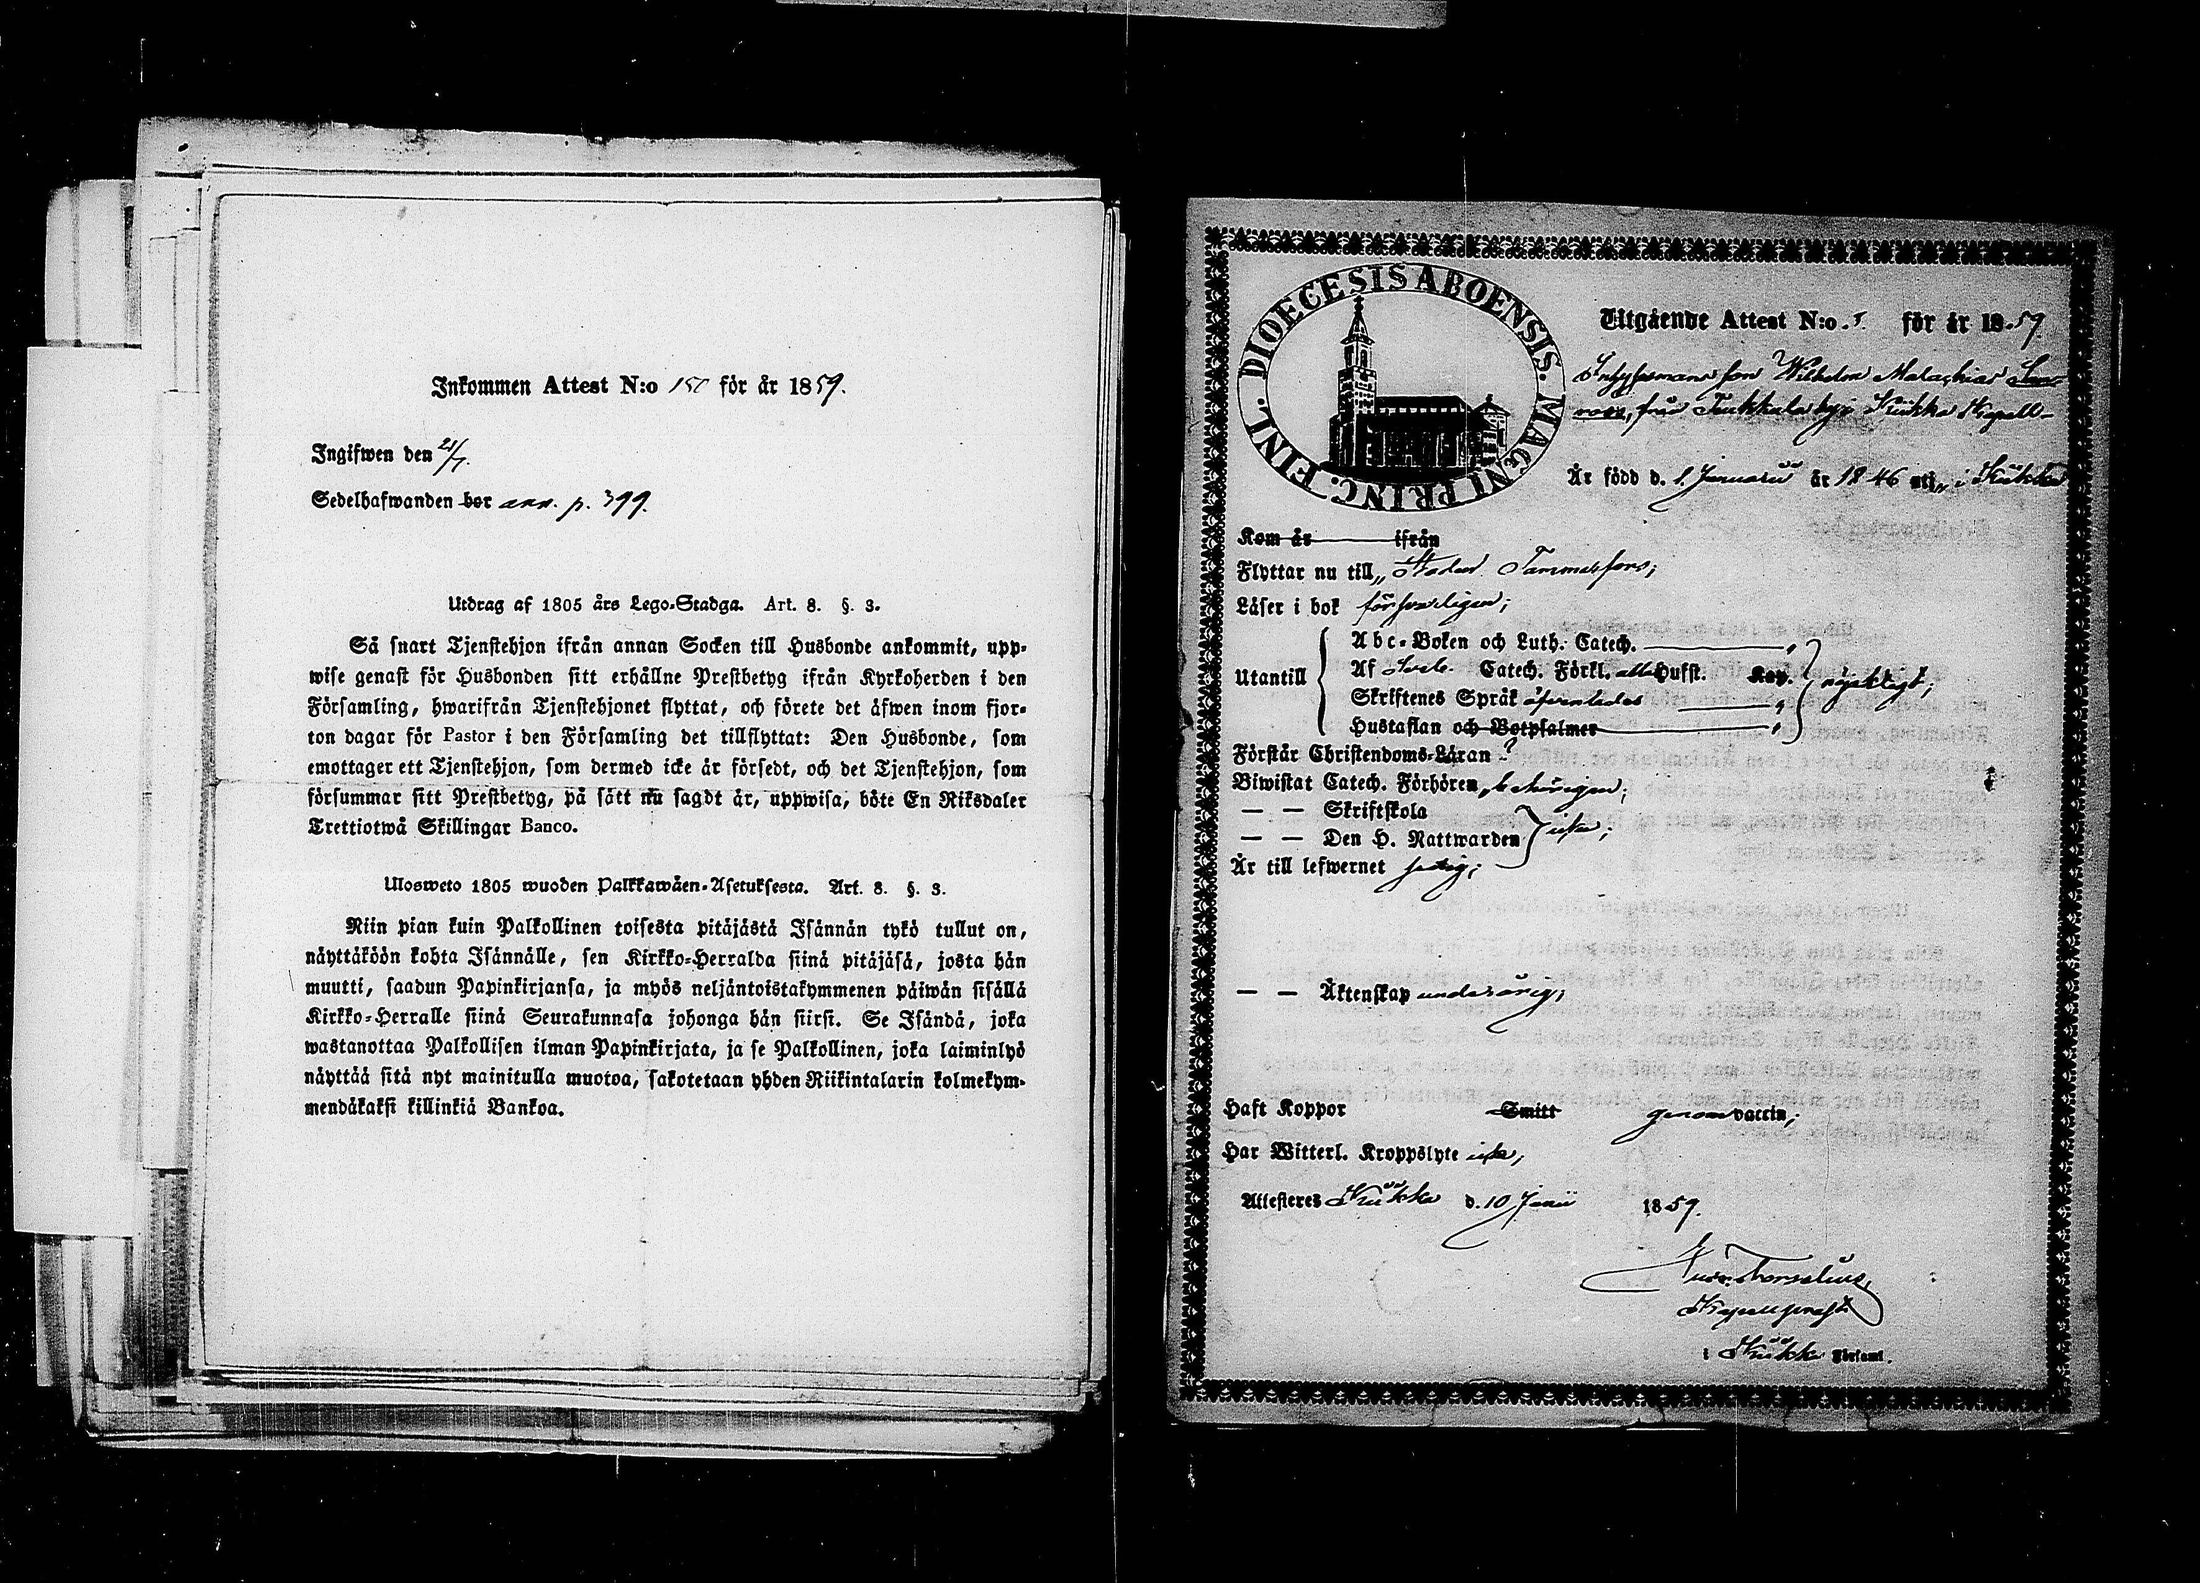 Inkommen Attest N:o 150 för år 1859.
Ingifwen den 21/7.
Sedelhafwanden bor ann. p. 399.
Utdrag af 1805 års Lego-Stadga. Art. 8. §. 3.
Så snart Tjenstehjon ifrån annan Socken till Husbonde ankommit, upp-
wise genast för Husbonden sitt erhållne Prestbetyg ifrån Kyrkoherden i den
Församling, hwarifrån Tjenstehjonet flyttat, och förete det äfwen inom fjor-
ton dagar för Pastor i den Församling det tillflyttat: Den Husbonde, som
emottager ett Tjenstehjon, som dermed icke är försedt, och det Tjenstehjon, som
försummar sitt Prestbetyg, på sätt nu sagdt är, uppwisa, böte En Riksdaler
Trettiotwå Skillingar Banco.
Ulosweto 1805 wuoden Palkkawäen-Asetuksesta. Art. 8. §. 3.
Niin pian kuin Palkollinen toisesta pitäjästä Isännän tykö tullut on,
näyttäköön kohta Isännälle, sen Kirkko-Herralda siinä pitäjäsä, josta hän
muutti, saadun Papinkirjansa, ja myös neljäntoistakymmenen päiwän sisällä
Kirkko-Herralle siinä Seurakunnasa johonga hän siirsi. Se Isändä, joka
wastanottaa Palkollisen ilman Papinkirjata, ja se Palkollinen, joka laiminlyö
näyttää sitä nyt mainitulla muotoa, sakotetaan yhden Riikintalarin kolmekym-
mendäkaksi killinkiä Bankoa.
DIOECESIS ABOENSIS. MAGNI PRINC. FINL.
Utgående Attest N:o 5. för år 1859.
Inhysesmans son Wilhelm Malachias
från Tiukkala by i Kiikka Kapell-
Är född d. 1 Januarii år 1846 uti i Kiikka
Kom år ifrån
Flyttar nu till Staden Tammerfors;
Läser i bok försvarligen;
Abc-Boken och Luth. Catech.
Utantill Af Sveb. Catech. Förkl. alla Hufst. Kap. nöjaktigt;
Skriftenes Språk äfvenledes
Hustaflan och Botpsalmer
Förstår Christendoms-Läran?
Biwistat Catech. Förhören behörigen;
— — Skriftskola
— — Den H. Nattwarden icke;
Är till lefwernet sedig;
— — Äktenskap underårig;
Haft Koppor Smitt genom vaccin;
Har Witterl. Kroppslyte icke;
Attesteres Kiikka d. 10 Junii 1859.
Kapellprest
i Kiikka Församl.